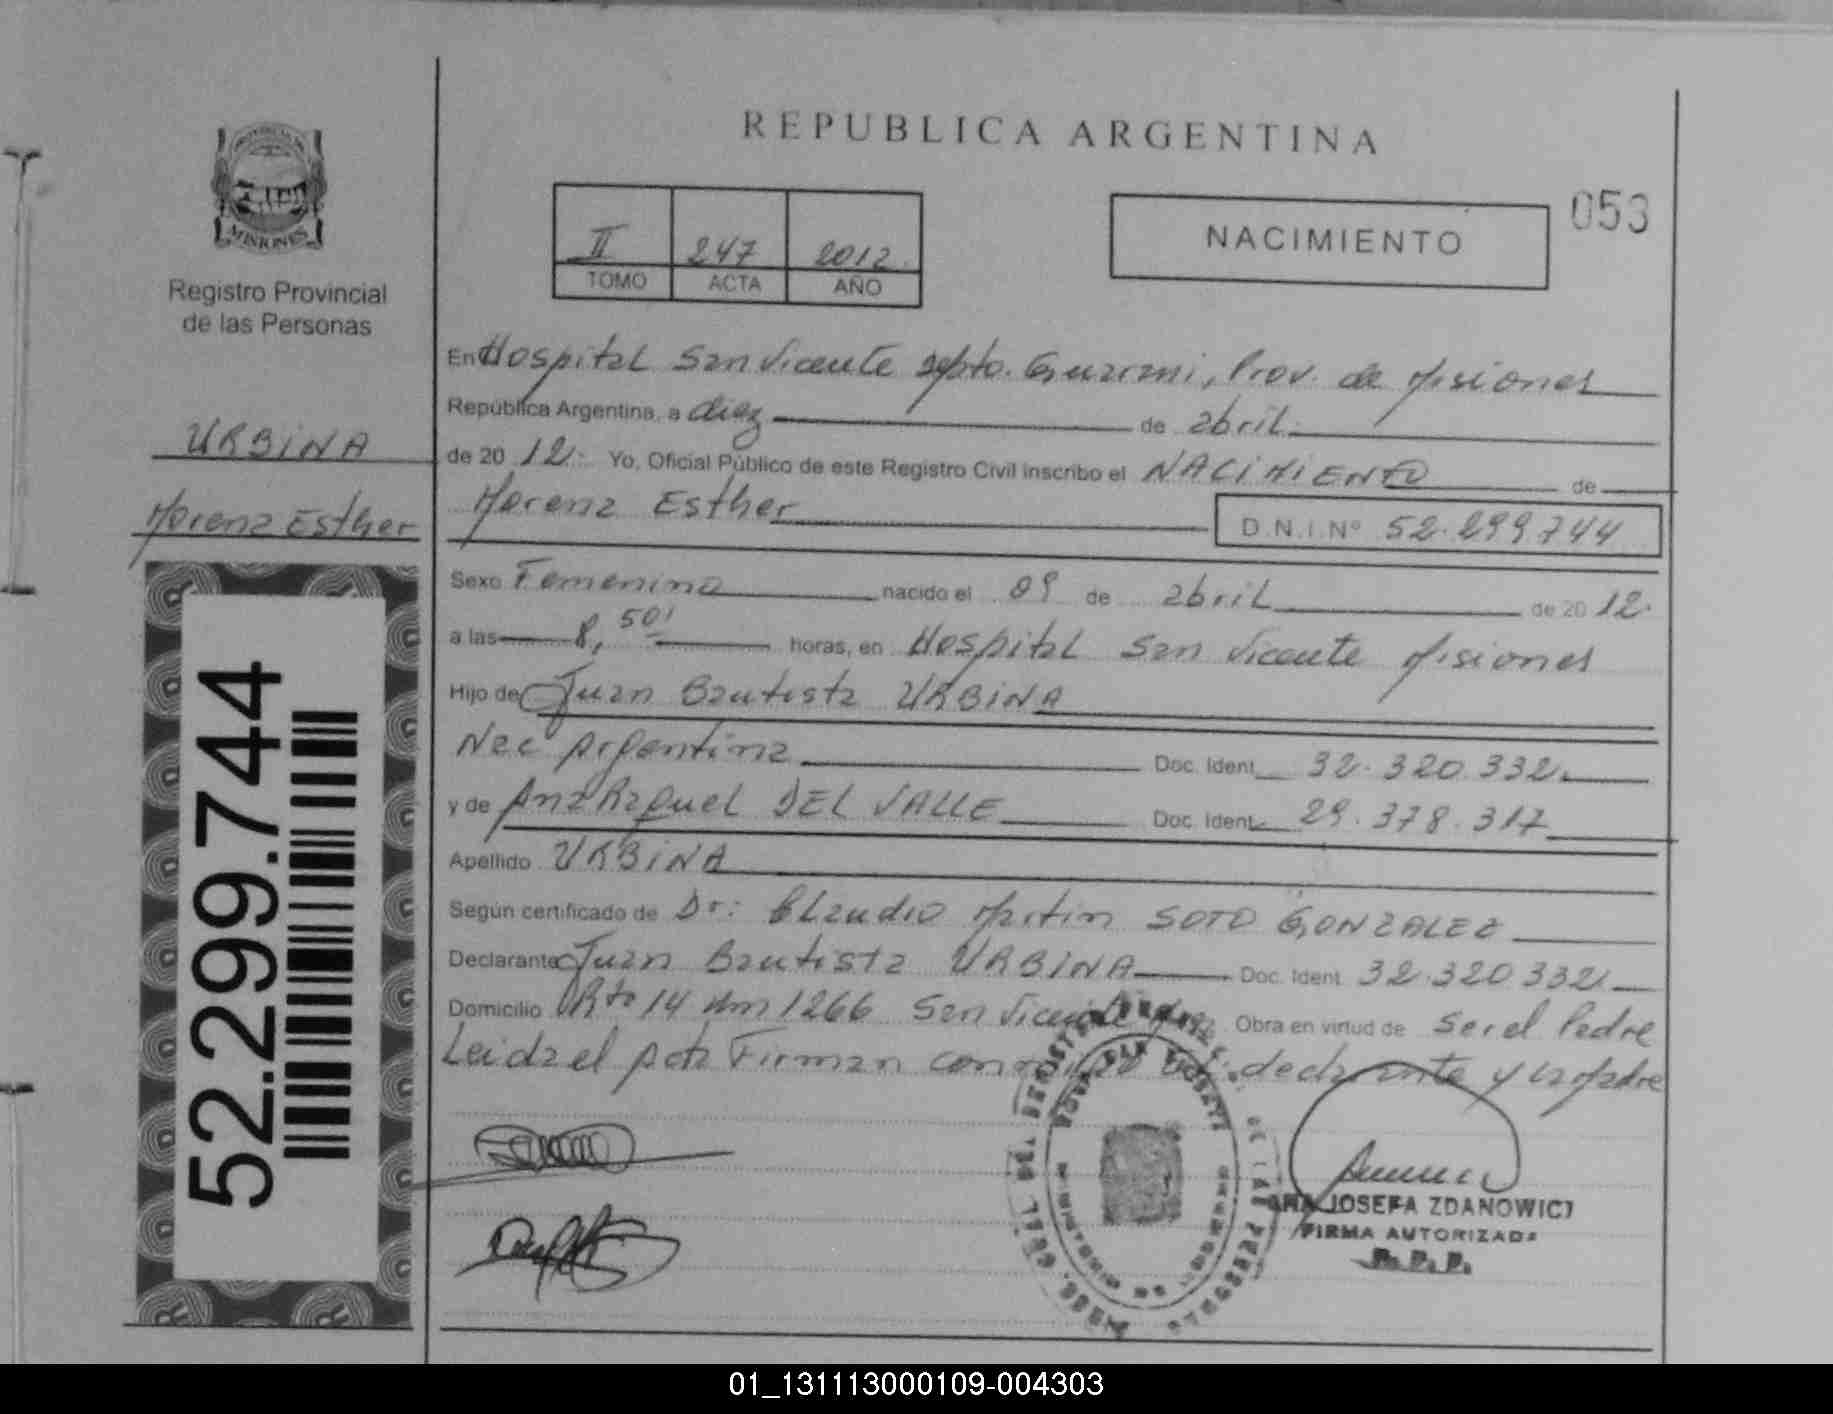 REPUBLICA ARGENTINA
MISIONES
Registro Provincial
de las Personas
II 247 2012
TOMO ACTA AÑO
NACIMIENTO
053
URBINA
Morena Esther
52.299.744
En Hospital San Vicente Depto. Guarani, Prov. de Misiones
República Argentina, a diez de abril
de 20 12 Yo, Oficial Público de este Registro Civil inscribo el NACIMIENTO de
Morena Esther D.N.I.Nº 52.299.744
Sexo Femenino nacido el 09 de abril de 20 12
a las 8,50' horas, en Hospital San Vicente Misiones
Hijo de Juan Bautista URBINA
Nac Argentina Doc. Ident. 32.320.332
y de Ana Raquel DEL VALLE Doc. Ident. 29.378.317
Apellido URBINA
Según certificado de Dr: Claudio Martin SOTO GONZALEZ
Declarante Juan Bautista URBINA Doc. Ident. 32.320.332
Domicilio Rta 14 Km 1266 San Vicente Obra en virtud de Ser el Padre
Leida el acta Firman declarante y la Madre
ANA JOSEFA ZDANOWICZ
FIRMA AUTORIZADA
R.P.P.
01_131113000109-004303